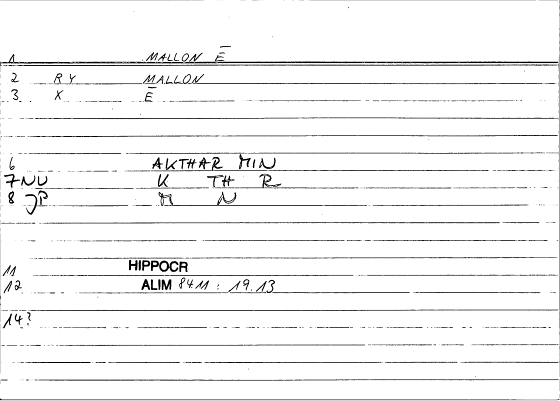 1 MALLON Ē
2 RY MALLON
3 X Ē
6 AKTHAR MIN
7 NU K TH R
8 JP M N
11 HIPPOCR
12 ALIM 8411 : 19.13
14?